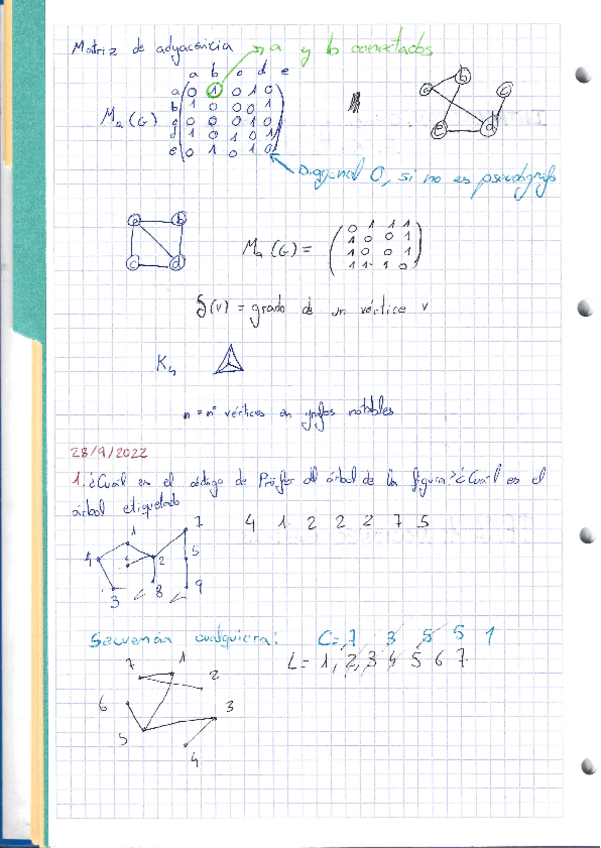 Matriz de adyacencia
a y b conectados
a b c d e
a 0 1 0 1 0
b 1 0 0 0 1
c 0 0 0 1 0
d 1 0 1 0 1
e 0 1 0 1 0
Ma(G)
a b c e d
Diagonal 0, si no es pseudografo
a b
c d
Ma(G) =
0 1 1 1
1 0 0 1
1 0 0 1
1 1 1 0
δ(v) = grado de un vértice v
K4
n = nº vértices en grafos notables
28/9/2022
1. ¿Cuál es el código de Prüfer del árbol de la figura? ¿Cuál es el
árbol etiquetado
4 1 2 2 2 7 5
1 7
4 2 5
3 8 9
Secuencia cualquiera: C=7 3 5 5 1
L = 1, 2, 3 4 5 6 7
7 1 2
6 3
5
4